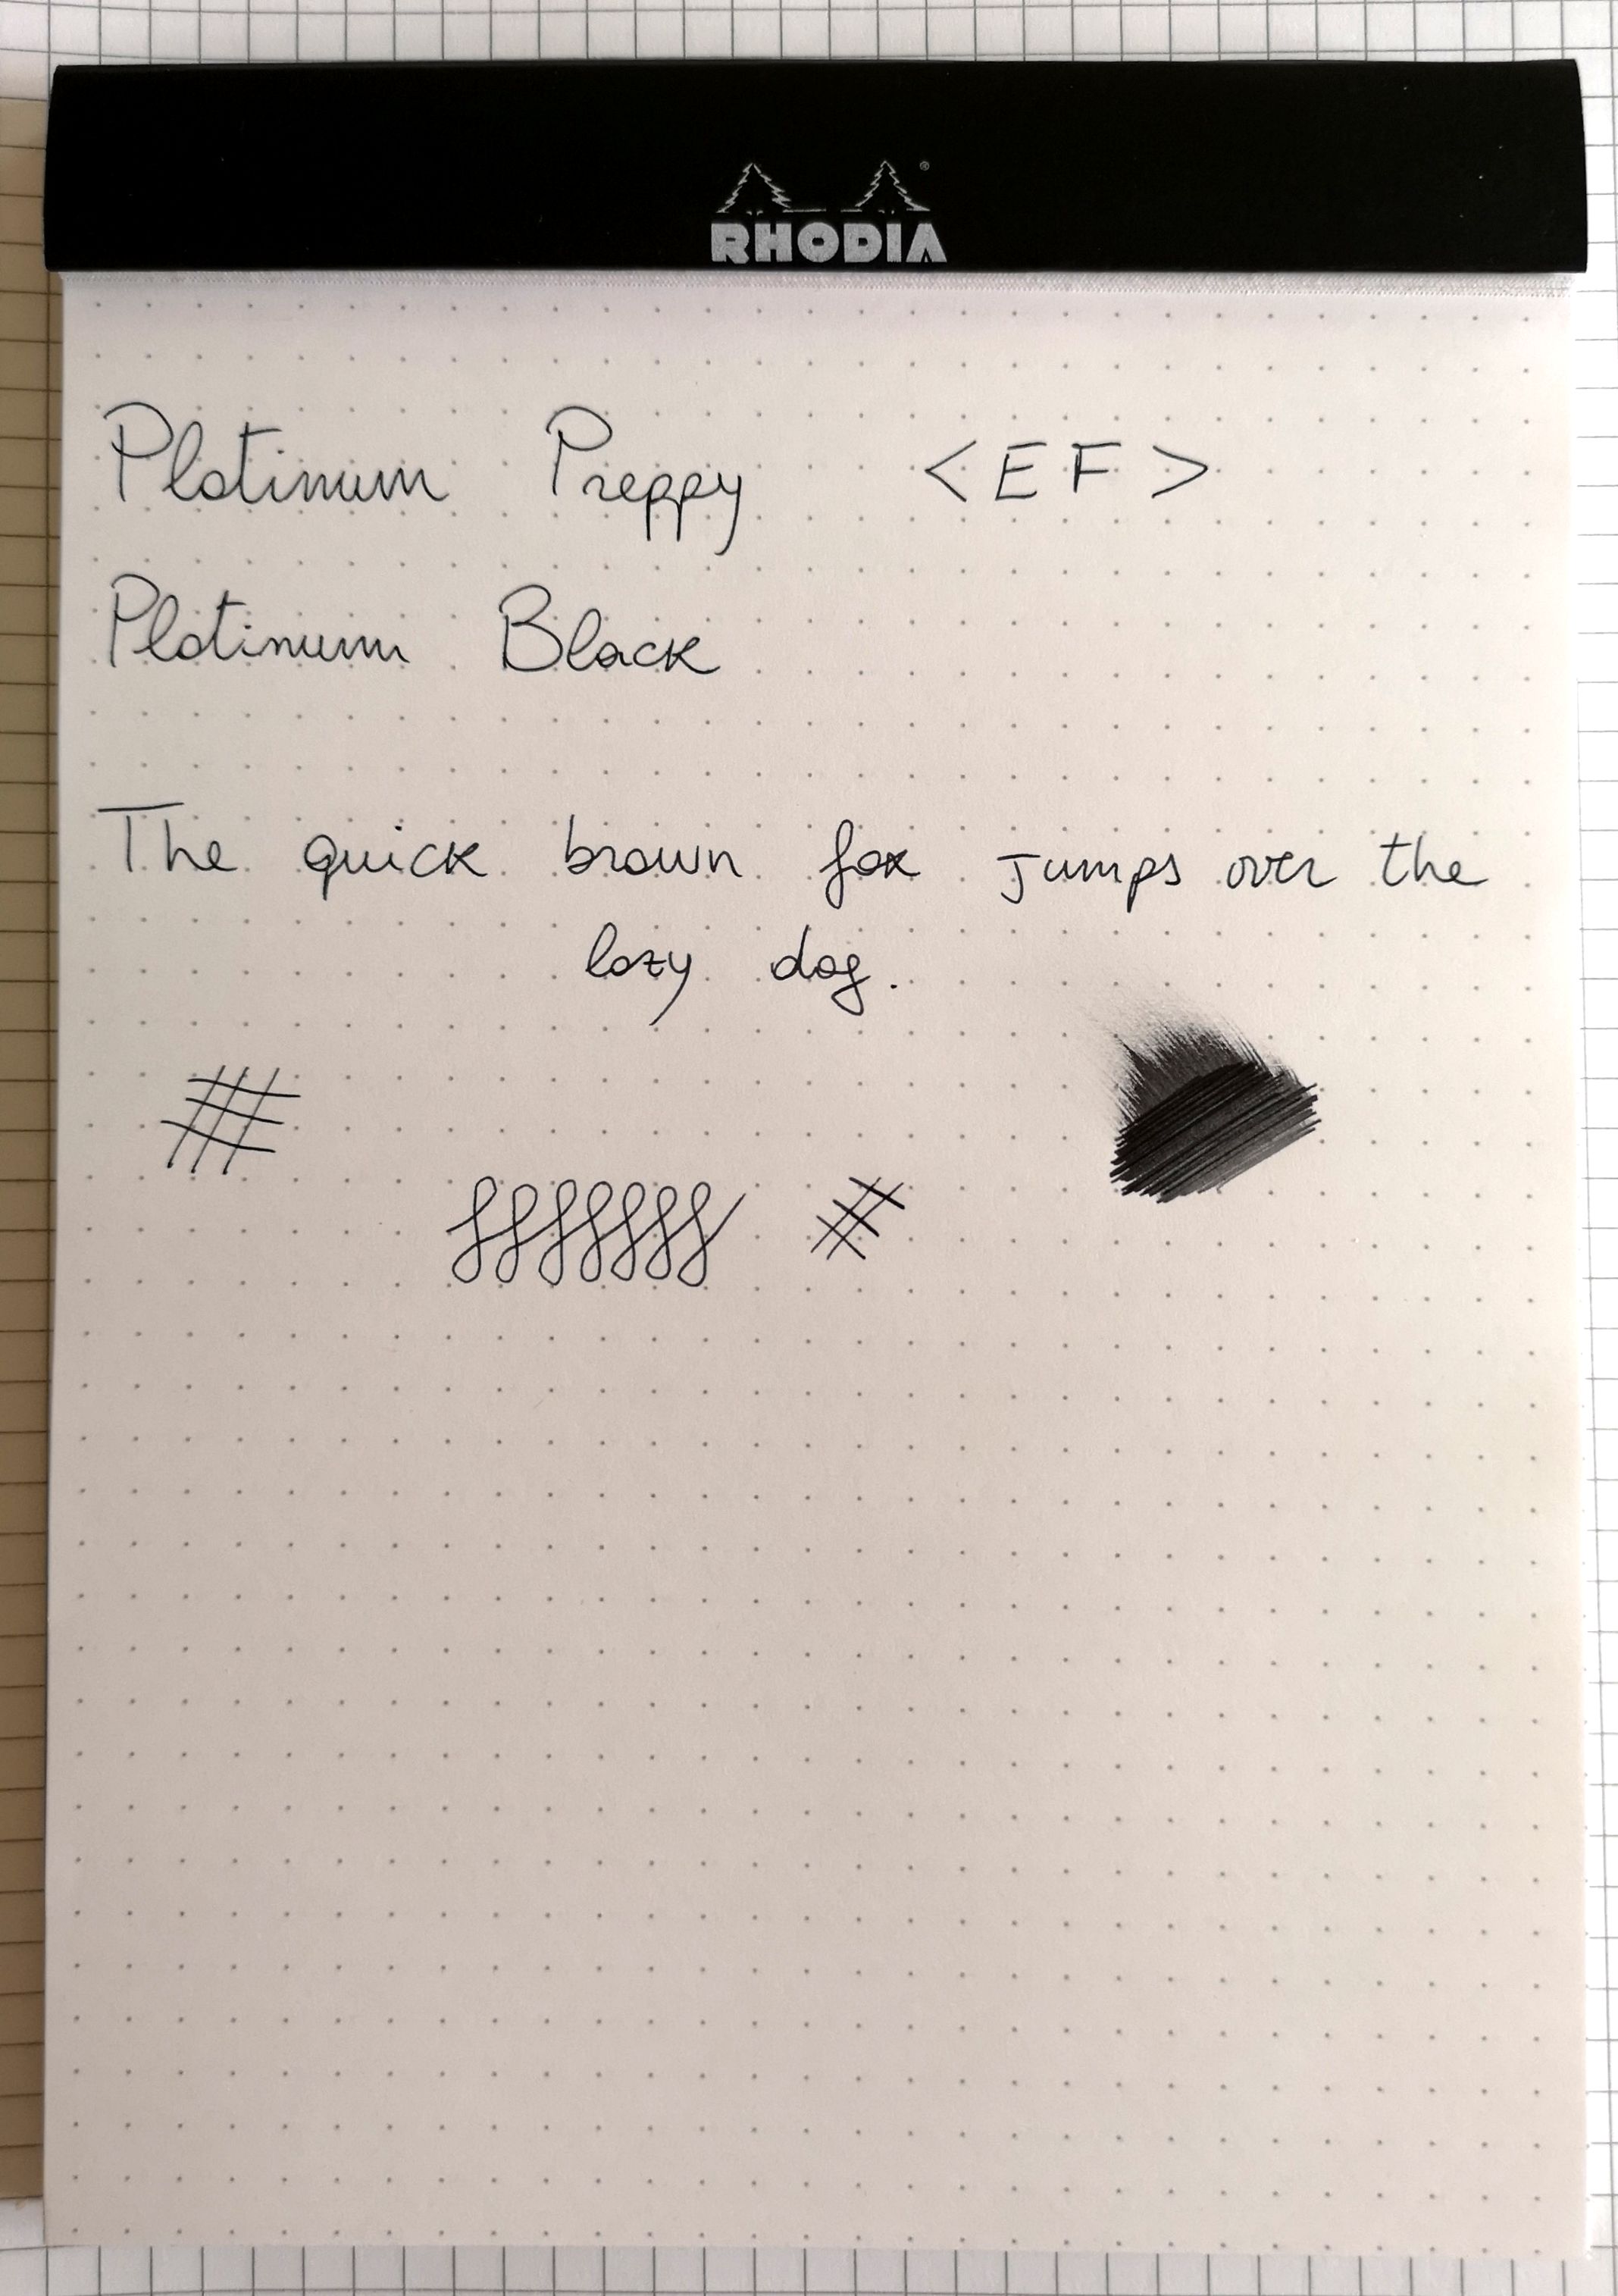 RHODIA
Platinum Preppy <EF>
Platinum Black
The quick brown fox jumps over the
lazy dog.